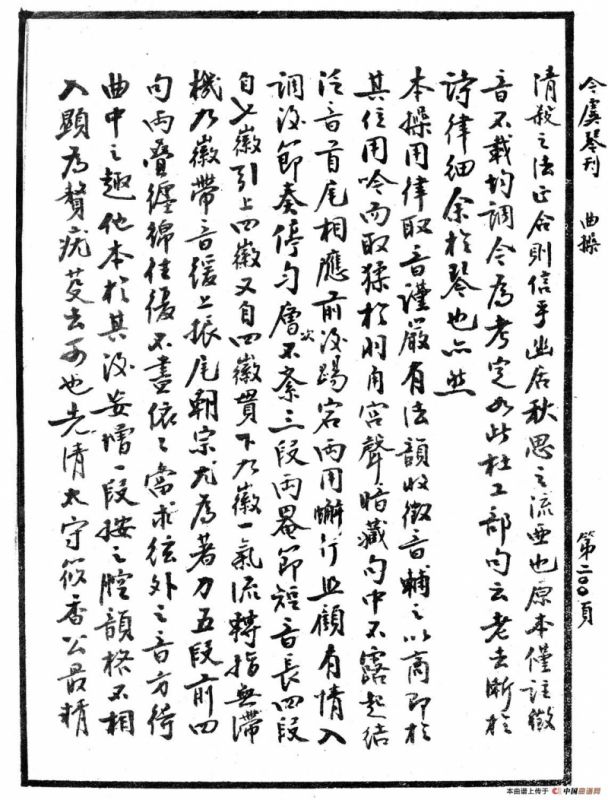 今虞琴刊 曲操
第二〇〇頁
清殺之法正合則信乎幽居秋思之流亞也原本僅註徵
音不載均調今為考定如此杜工部句云老去漸於
詩律細余於琴也亦然
本操用律取音謹嚴有法韻收徵音輔之以商即於
其位用吟而取猱於羽角宮聲暗藏句中不露起結
泛音首尾相應前後蹋宕兩用蠏行並顧有情入
調後節奏停勻層次不紊三段兩罨節短音長四段
自七徽引上四徽又自四徽貫下九徽一氣流轉指無滯
機九徽帶音緩上振尾朝宗尤為著力五段前四
句兩疊纏綿往復不盡依依當求絃外之音方得
曲中之趣他本於其後妄增一段按之腔韻格不相
入顯為贅疣芟去可也先清太守筱香公最精
本曲谱上传于 中国曲谱网